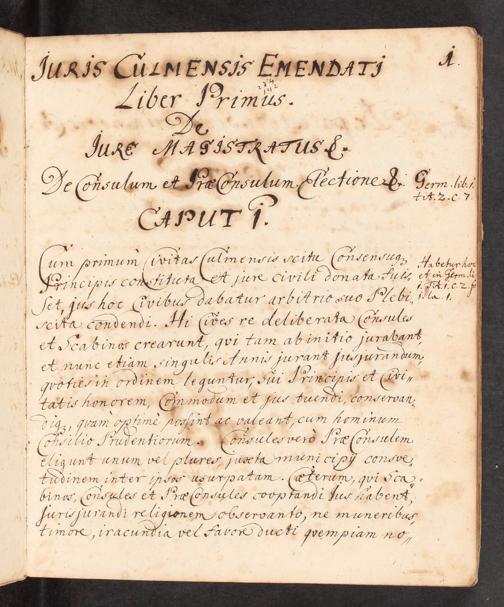 1.
IURIS CULMENSIS EMENDATI
Liber Primus.
De
IURE MAGISTRATUS &.
De Consulum et PræConsulum Electione &.
Germ. lib. 1.
tit. 2. c. 7.
CAPUT I.
Cum primum Civitas Culmensis scitu Consensuq
Principis constituta et jure civili donata fuis„
set, jus hoc Civibus dabatur arbitrio suo Plebi„
scita condendi. Hi Cives re deliberata Consules
et Scabinos crearunt, qvi tam ab initio jurabant,
et nunc etiam singulis Annis jurant jusjurandum,
qvoties in ordinem leguntur, sui Principis et Civi„
tatis honorem, Commodum et jus tuendi, conservan„
diq, qvam optime possint ac valeant, cum hominum
Consilio Prudentiorum. Consules verò PræConsulem
eligunt unum vel plures, juxta municipij consve„
tudinem inter ipsos usurpatam. Cæterum, qvi Sca„
binos, Consules et PræConsules cooptandi Ius habent,
Jurisjurandi religionem observanto, ne muneribus,
timore, iracundia vel favore ducti qvempiam no„
Habetur hoc
et in Germ. li